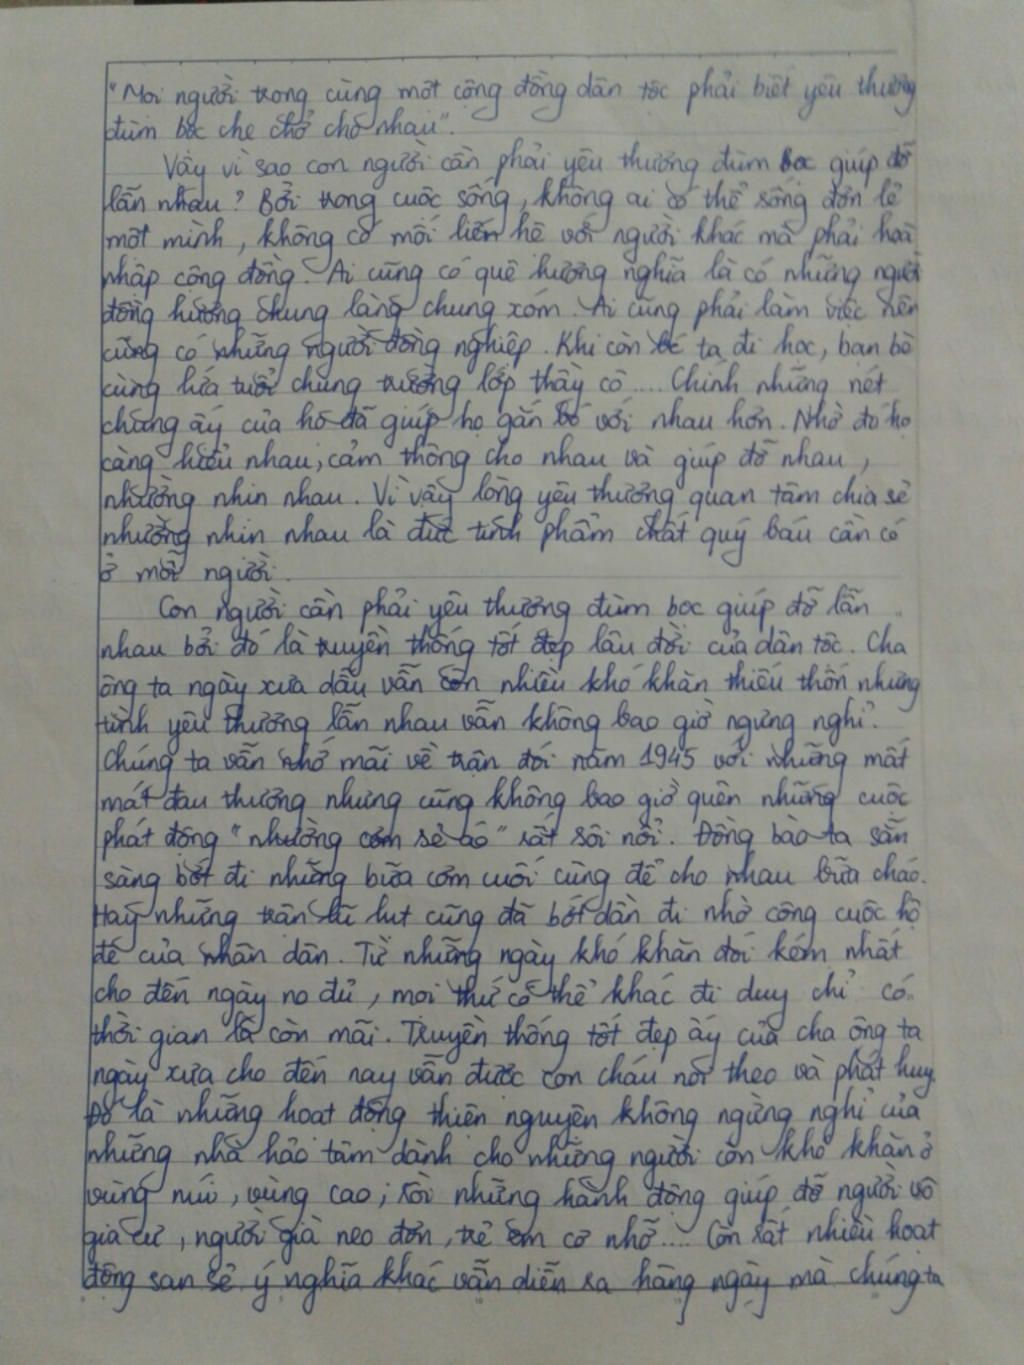 "Mọi người trong cùng một cộng đồng dân tộc phải biết yêu thương
đùm bọc che chở cho nhau".
Vậy vì sao con người cần phải yêu thương đùm bọc giúp đỡ
lẫn nhau? Bởi trong cuộc sống, không ai có thể sống đơn lẻ
một mình, không có mối liên hệ với người khác mà phải hoà
nhập cộng đồng. Ai cũng có quê hương nghĩa là có những người
đồng hương chung làng chung xóm. Ai cũng phải làm việc nên
cũng có những người đồng nghiệp. Khi còn bé ta đi học, bạn bè
cùng lứa tuổi chung trường lớp thầy cô.... Chính những nét
chung ấy của họ đã giúp họ gắn bó với nhau hơn. Nhờ đó họ
càng hiểu nhau, cảm thông cho nhau và giúp đỡ nhau,
nhường nhịn nhau. Vì vậy lòng yêu thương quan tâm chia sẻ
nhường nhịn nhau là đức tính phẩm chất quý báu cần có
ở mỗi người.
Con người cần phải yêu thương đùm bọc giúp đỡ lẫn
nhau bởi đó là truyền thống tốt đẹp lâu đời của dân tộc. Cha
ông ta ngày xưa dẫu vẫn còn nhiều khó khăn thiếu thốn nhưng
tình yêu thương lẫn nhau vẫn không bao giờ ngưng nghỉ.
Chúng ta vẫn nhớ mãi về trận đói năm 1945 với những mất
mát đau thương nhưng cũng không bao giờ quên những cuộc
phát động "nhường cơm sẻ áo" rất sôi nổi. Đồng bào ta sẵn
sàng bớt đi những bữa cơm cuối cùng để cho nhau bữa cháo.
Hay những trận lũ lụt cũng đã bớt dần đi nhờ công cuộc hộ
đê của nhân dân. Từ những ngày khó khăn đói kém nhất
cho đến ngày no đủ, mọi thứ có thể khác đi duy chỉ có
thời gian là còn mãi. Truyền thống tốt đẹp ấy của cha ông ta
ngày xưa cho đến nay vẫn được con cháu nối theo và phát huy.
Đó là những hoạt động thiện nguyện không ngừng nghỉ của
những nhà hảo tâm dành cho những người còn khó khăn ở
vùng núi, vùng cao; rồi những hành động giúp đỡ người vô
gia cư, người già neo đơn, trẻ em cơ nhỡ.... Còn rất nhiều hoạt
động san sẻ ý nghĩa khác vẫn diễn ra hàng ngày mà chúng ta